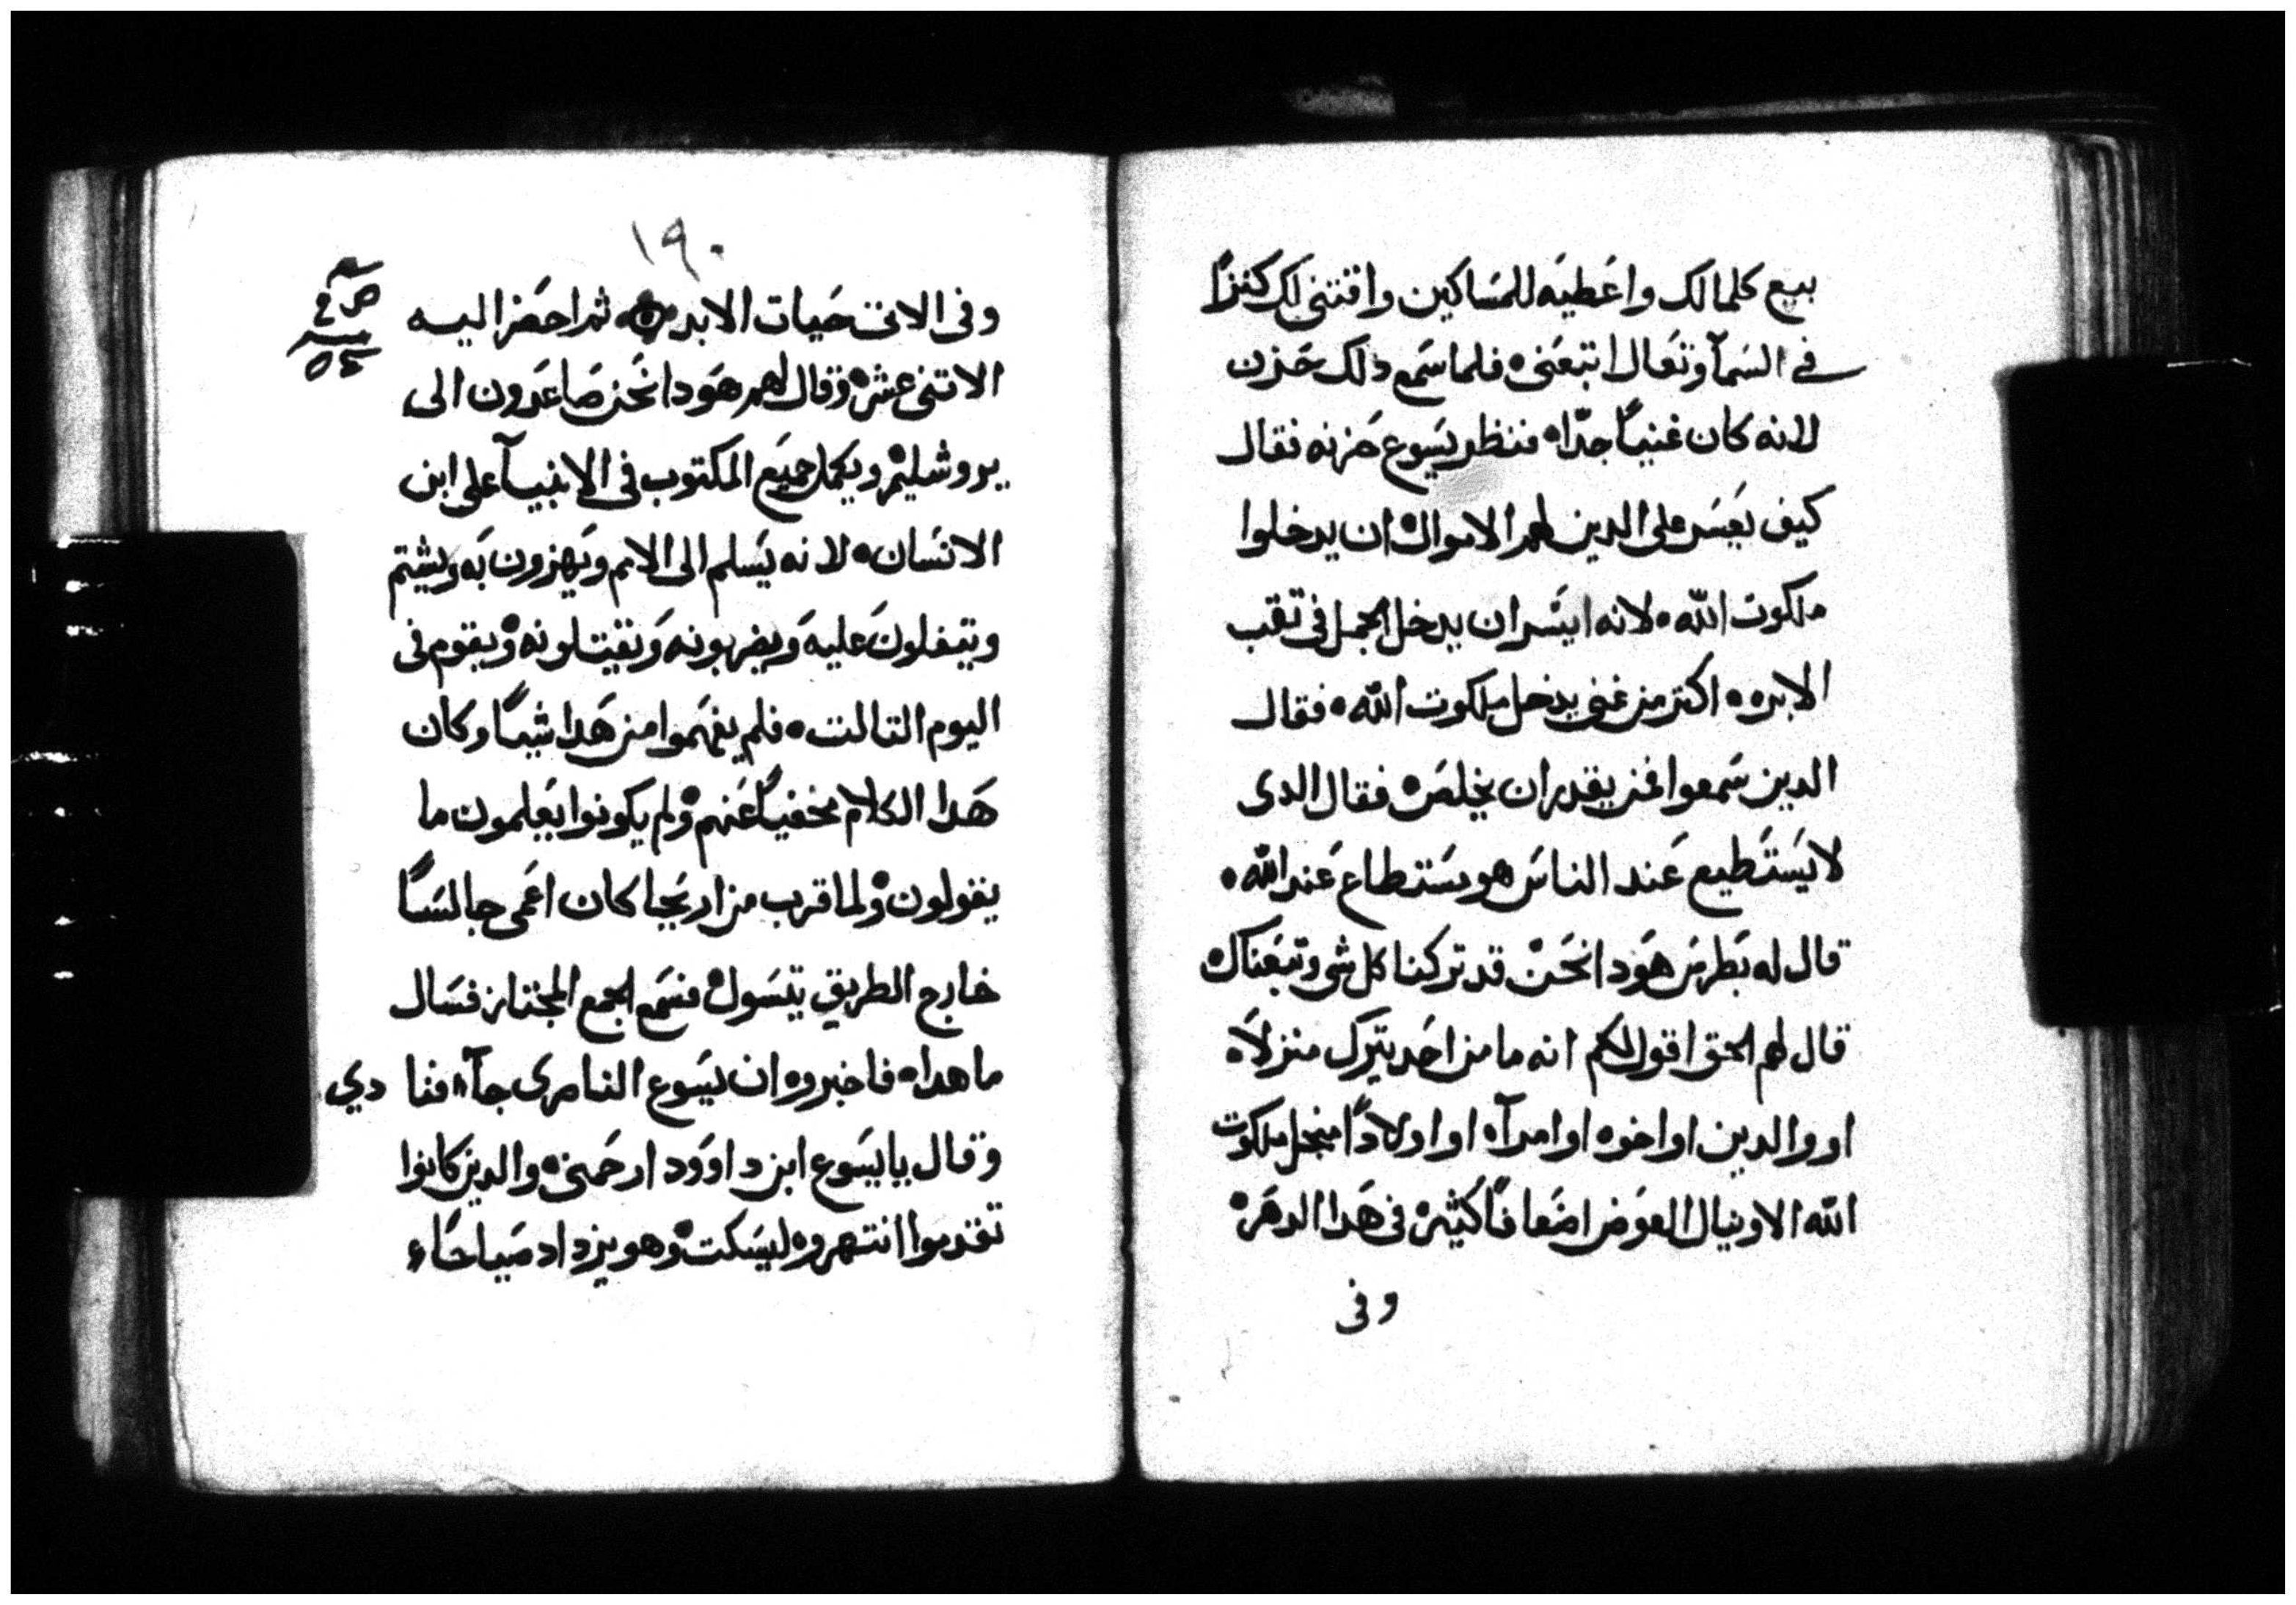 بيع كلمالك واعطيه للمساكين واقتني لك كنزًا
في السمآ وتعال اتبعني فلما سمع دلك حزن
لانه كان غنيًا جدًا فنظر يسوع حزنه فقال
كيف يعسر على الدين لهم الاموال ان يدخلوا
ملكوت الله لانه ايسر ان يدخل الجمل في تقب
الابره اكتر من غني يدخل ملكوت الله فقال
الدين سمعوا فمن يقدر ان يخلص فقال الدى
لا يستطيع عند الناس هو يستطاع عند الله
قال له بطرس هودا نحن قد تركنا كل شى وتبعناك
قال لهم الحق اقول لكم انه ما من احد يترك منزلاً
او والدين او اخوه او امرآه او اولادًا من اجل ملكوت
الله الا وينال العوض اضعافًا كثيره فى هدا الدهر
وفى
١٩٠
وفى الاتى حيات الابد ثم احضر اليه
الاتنى عشر وقال لهم هودا نحن صاعدون الى
يروشليم ويكمل جميع المكتوب فى الانبيآ على ابن
الانسان لانه يسلم الى الامم ويهزون به ويشتم
ويتفلون عليه ويضربونه ويقتلونه ويقوم فى
اليوم التالت فلم يفهموا من هدا شيًا وكان
هدا الكلام مخفيًا عنهم ولم يكونوا يعلمون ما
يقولون ولما قرب من اريحا كان اعمى جالسًا
خارج الطريق يتسول فسمع الجمع المجتاز فسال
ما هدا فاخبروه ان يسوع الناصرى جآ فنا دي
وقال يا يسوع ابن داوود ارحمنى والدين كانوا
تقدموا انتهروه ليسكت وهو يزداد صياحًا